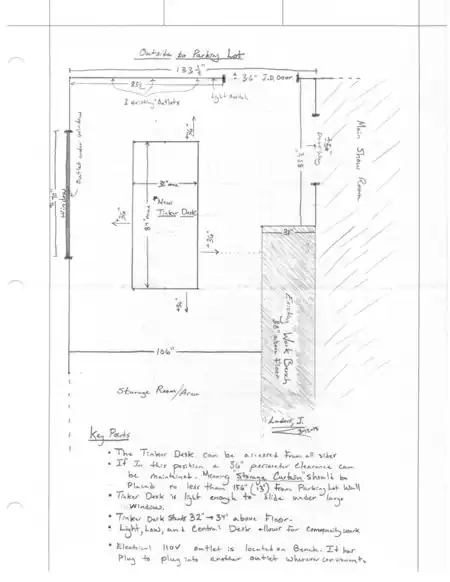 Outside to Parking Lot
133 ½"
85½
36" I.D. Door
3 existing outlets
Light switch
Outlet under window
Window
36"
38" max
84" max
*New
Tinker Desk
36"
36"
36"
Main Show Room
38"
Existing Work Bench
38" above Floor
106"
Storage Room/Area
Landers, J.
Key Points
• The Tinker Desk can be accessed from all sides
• If In this position a 36" perimeter clearance can
be maintained. Meaning Storage Curtain should be
Plumb no less than 156" (13') from Parking Lot Wall
• Tinker Desk is light enough to slide under large
Windows.
• Tinker Desk Stands 32" → 34" above Floor.
• Light, Low, and Central Desk allows for community work
• Electrical 110V outlet is located on Bench. It has
Plug to plug into another outlet wherever convenient.